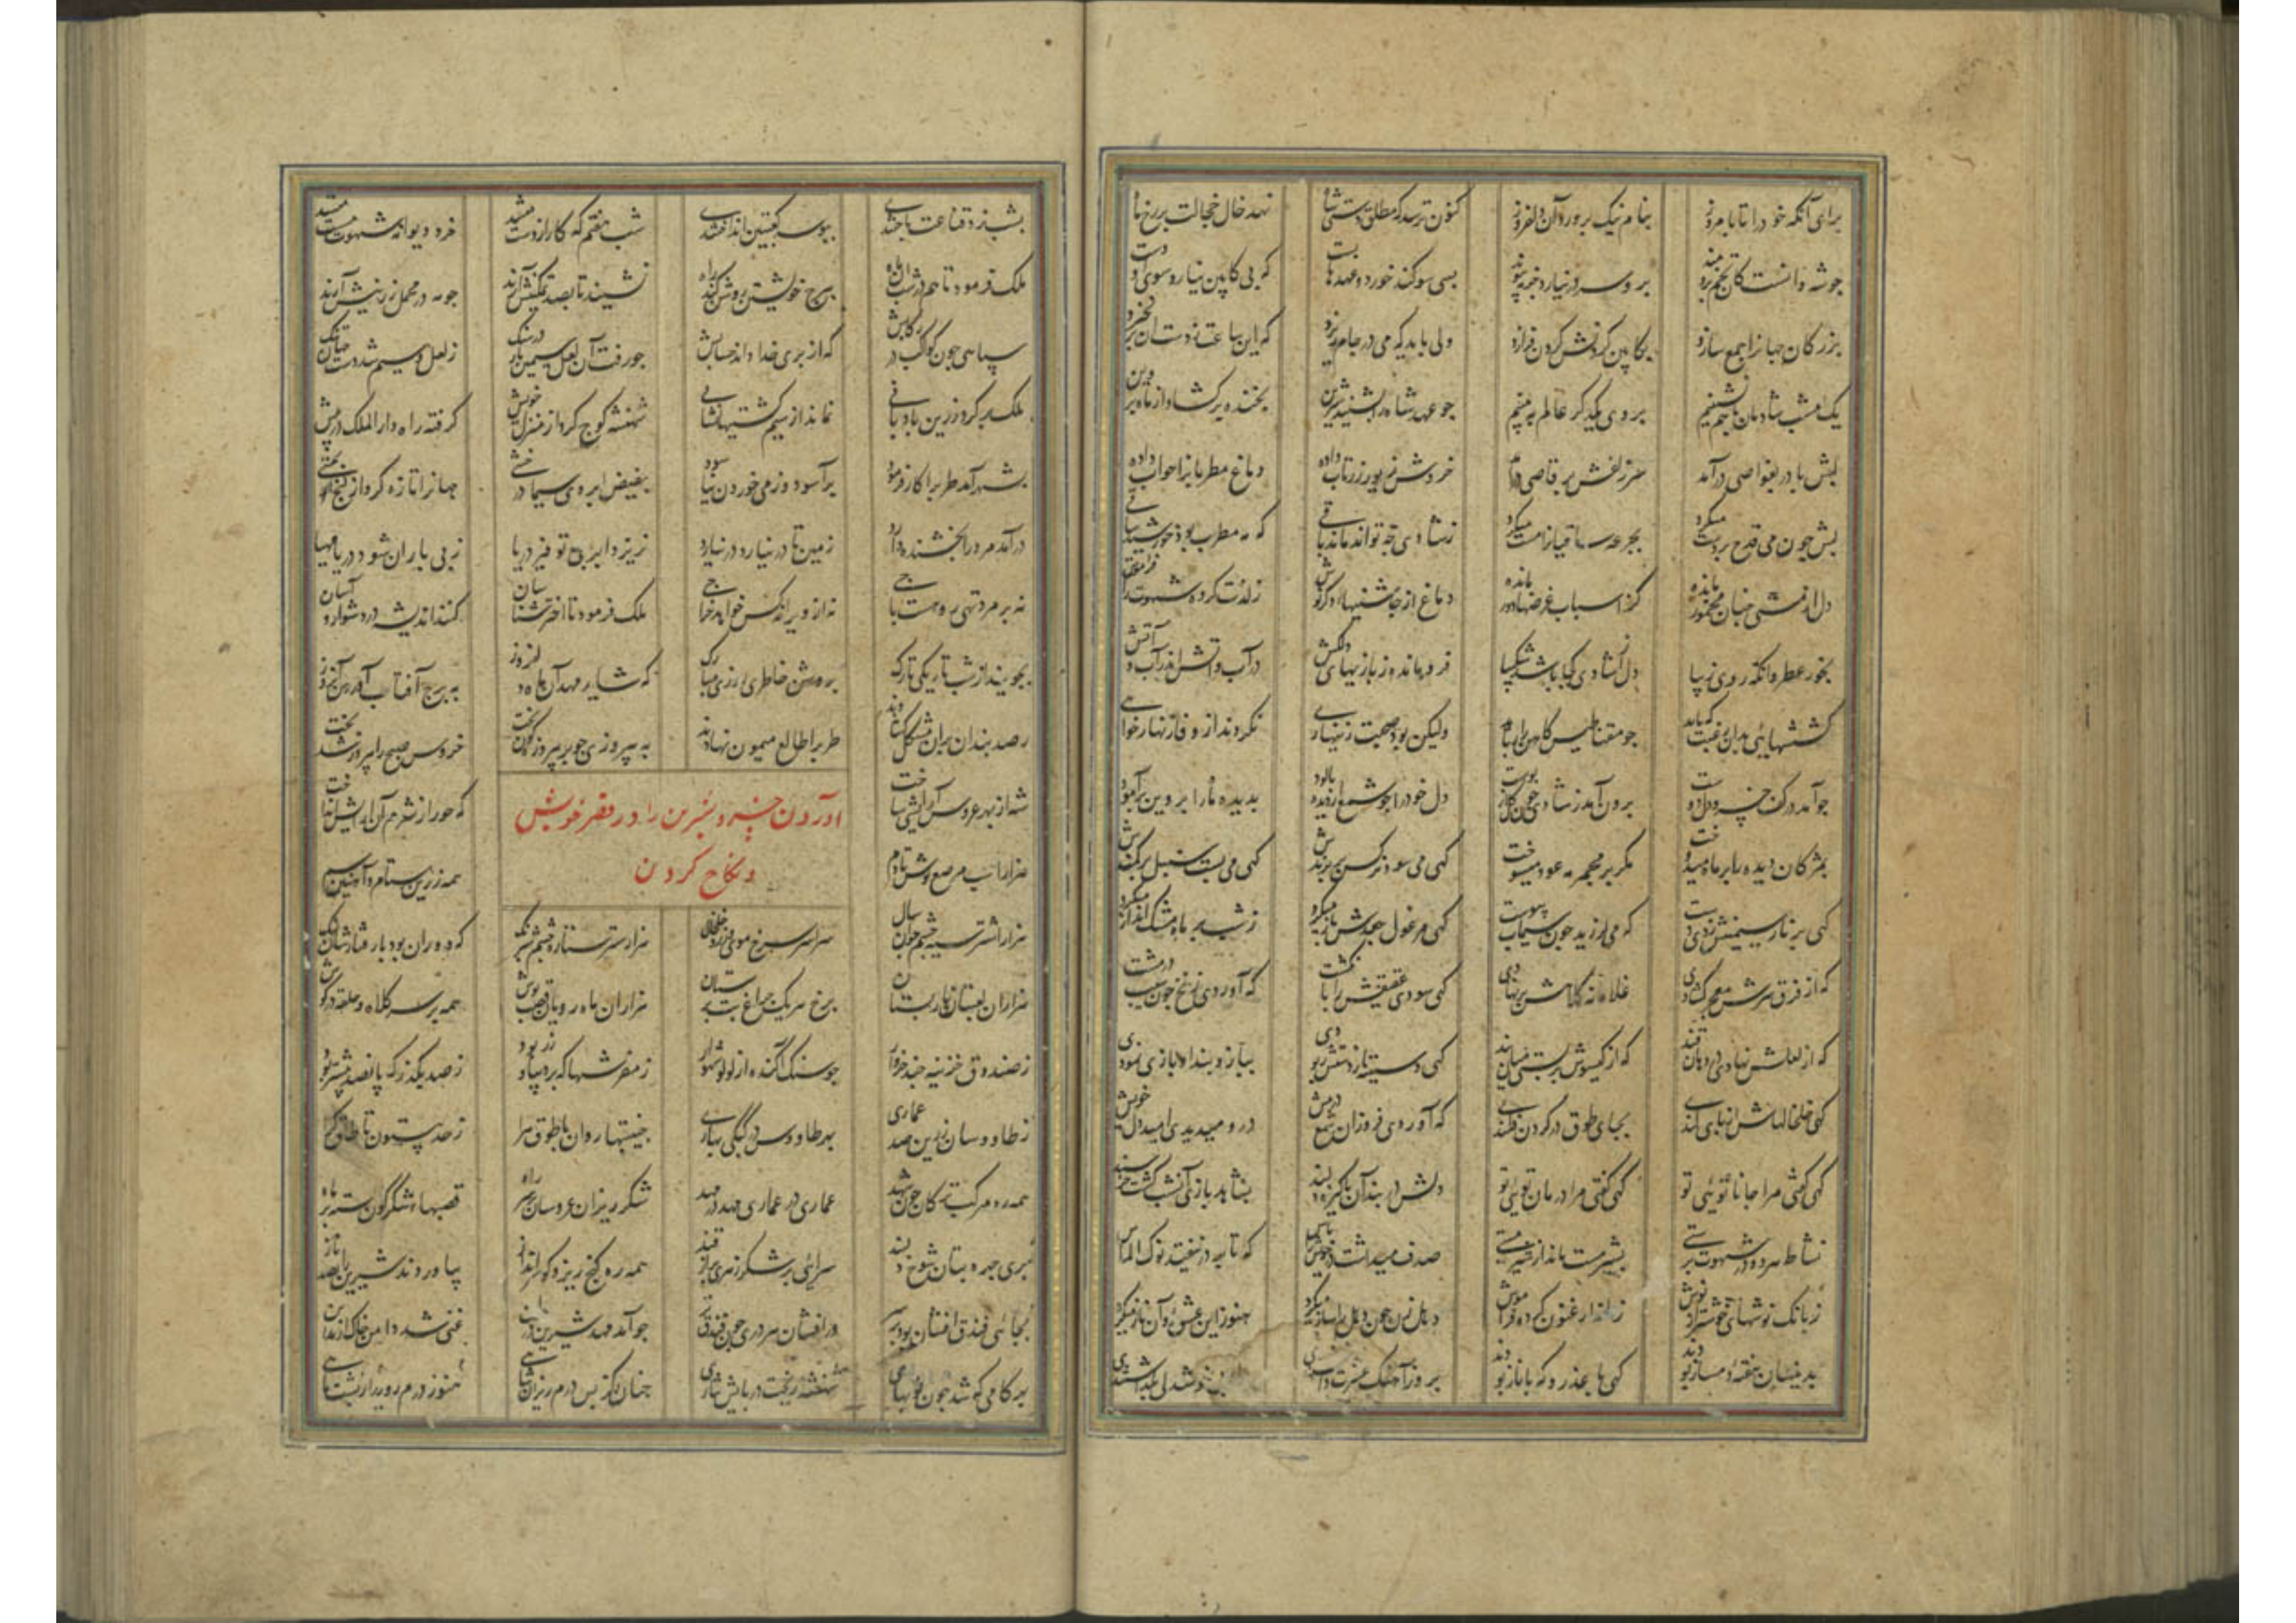 برای آنکه خود را تا بامروز بنام نیک پرورد آن دلفروز کنون ترسد که مطلق دستی شاه نهد خال خجالت بر رخ ماه
چو شه دانست کان تخم برومند بدو سر در نیارد جز بپیوند بسی سوکند خورد و عهدها بست که بی کابین نیارد سوی او دست
بزرکان جهانرا جمع سازد بکابین کردنش کردن فرازد ولی باید که می در جام ریزد که این ساعت ز دستان برنخیزد
یک امشب شادمان با هم نشینیم بروی یکدکر عالم ببینیم چو عهد شاه را بشنید شیرین بخنده برکشاد از ماه پروین
لبش با در بغواصی درآمد سر زلفش برقاصی برآمد خروش زیور زر تاب داده دماغ مطربانرا خواب داده
لبش چون می قدح بر دست میکرد بجرعه ساقیانرا مست میکرد ز شادی چه تواند ماند باقی که مه مطرب بود خورشید ساقی
دل از مستی چنان مخمور مانده کز اسباب غرضها دور مانده دماغ از چاشنیهای ز لذت کرده شهوت را فرامش
بخور عطر وانکه روی زیبا دل از شادی کجا باشد شکیبا فرو مانده ز بازیهای دلکش در آب و آتش اندر آب و آتش
کششهائی بدان رغبت که باید چو مغناطیس کاهن را رباید ولیکن بود صحبت زینهاری نکردند از وفا زنهار خواری
چو آمد در کف خسرو دل دوست برون آمد ز شادی چون کل از پوست دل خود را چو شمع از دیده پالود بدیده ماه را پروین برآمود
بمژکان دیده را بر ماه میدوخت مکر بر مجمر مه عود میسوخت کهی می سود نرکس بر پرندش کهی می بست سنبل بر کمندش
کهی بر نار سیمینش زدی دست که می لرزید چون سیماب پیوست کهی مرغول جعدش باز میکرد ز شب بر ماه مشک انداز میکرد
که از فرق سرش معجر کشادی غلامانه کلاهش بر نهادی کهی سودی عقیقش را بانکشت که آوردی زنخ چون سیب در مشت
که از لعلش نهادی در دهان قند که از کیسوش بستی بر میان بند کهی دستینه از دستش ربودی ببازوبند او بازی نمودی
کهی خلخالهاش از پای کندی بجای طوق در کردن فکندی که آوردی فروزان شمع در پیش درو میدیدی امید دل خویش
کهی کفتی مرا جانا توئی تو کهی کفتی مرا درمان توئی تو دلش در بند آن پاکیزه دلبند بشاهد بازی آنشب کشت خرسند
نشاط هر دو در شهوت پرستی بشیر مست ماند از شیر مستی صدف میداشت درج خویش را پاس که تا بر در نیفتد نوک الماس
ز بانک نوشهای خوشتر از نوش ارغنون کرده فراموش دهل زن چون دهل را ساز میکرد هنوز این عشق و آن ناز میکرد
بدینسان هفته دمساز بودند کهی با عذر و که با ناز بودند بروز آهنک عشرت داشتندی
بشب نرد قناعت باختندی ببوسه کعبتین انداختندی شب هفتم که کار از دست میشد خرد دیوانه شهوت مست میشد
ملک فرمود تا هم در شب آن ماه ببرج خویشتن روشن کند راه نشیند تا بصد تمکینش آرند چو مه در محمل زرینش آرند
سپاهی چون کواکب در رکابش که از پری خدا داند حسابش چو رفت آن لعل ز لعل و سیم شد دست
ملک برکرد زرین بادبانی نماند از سیم کشتیها نشانی شهنشه کوچ کرد از منزل خویش کرفته راه دارالملک در پیش
بشهر آمد طرب را کار فرمود برآسود و ز می خوردن نیاسود بفیض ابروی سیما درخشی جهانرا تازه کرد از کنج بخشی
درآمد مرد را بخشنده دارد زمین تا در نیارد در نیارد نریزد ابر بی توفیر دریا ز بی باران شود دریا مهیا
نه بر مرد تهی رو هست باجی نه از ویرانه کس خواهد خراجی ملک فرمود تا اخترشناسان کنند اندیشه در دشوار و آسان
بجویند از شب تاریک تارک بروشن خاطری روزی مبارک که شاید مهد آن ماه دلفروز به برج آفتاب آوردن آن روز
رصدبندان بران مشکل کشادند طرب را طالع میمون نهادند به پیروزی چو بر پیروزه کون تخت خروس صبح را پیروز شد بخت
شه از بهر عروس آرایشی ساخت که خور از شرم آن آرایش انداخت
آوردن خسرو شیرین را در قصر خویش
و نکاح کردن
هزار اسب مرصع کوش تا دم همه زرین ستام و آهنین سم
هزار اشتر سیه چشم و جوان سال سراسر سرخ موی و زرد خلخال هزار استر ستاره چشم و شبرنک که دوران بود با رفتارشان لنک
هزاران لعبتان نار پستان برخ هر یک چراغ بت پرستان هزاران ماه رویان قصب پوش همه بر سر کلاه و حلقه در کوش
ز صندوق خزینه چند خروار چو سنک آکنده از لولو شهوار ز مفرشها که پر دیبا و زر بود ز صد بگذر که پانصد بیشتر بود
ز طاووسان زرین صد عماری بهر طاووس در کبکی بهاری جنیبتها روان با طوق و هرا ز حد بیستون تا طاق کرا
همه ره موکب ترکان چون شهد عماری در عماری مهد در مهد شکر ریزان عروسان بر سر راه قصبهاء شکر کون بسته بر ماه
پری چهره بتان شوخ دلبند همه ره کنج ریز و کوهر انداز بیاوردند شیرین را بصد ناز
بجائی فندق افشان بود بر سر درافشان هر دری چون فندق تر چو آمد مهد شیرین در مداین غنی شد دامن خاک از خزاین
بهر کامی که شد چون نو بهاری شهنشه ریخت در پایش نثاری چنان کز بس درم ریزان شاهی هنوز درم روید از پشت ماهی